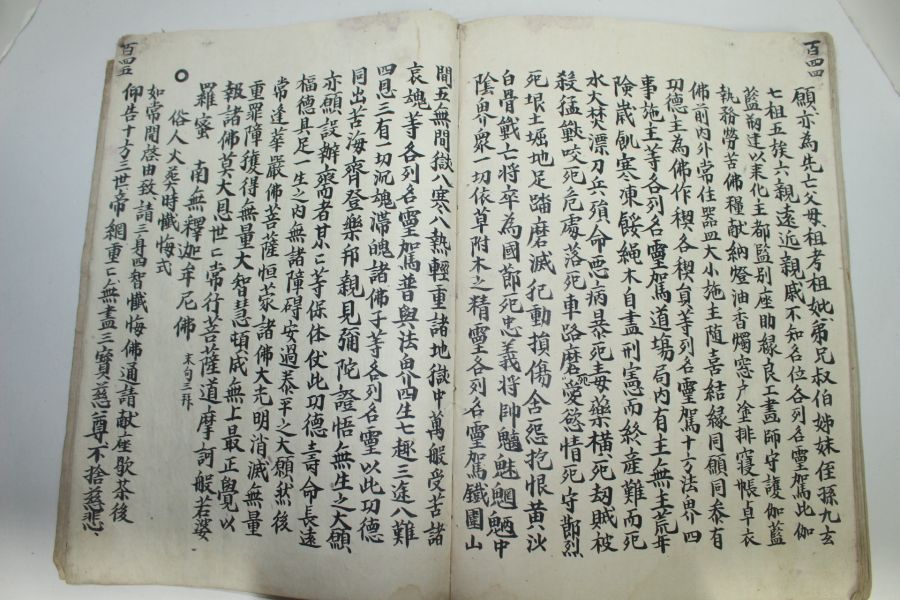 百四四
願亦為先亡父母祖考祖妣弟兄叔伯姊妹侄孫九玄
七祖五族六親遠近親戚不知名位各列名靈駕此伽
藍刱建以來化主都監別座助緣良工畫師守護伽藍
執務勞苦佛糧献納燈油香燭窓戶塗排寢帳卓衣
佛前内外常住器皿大小施主随喜結緣同願同叅有
功德主為佛作稧各稧員等列名靈駕十方法界四
事施主等各列名靈駕道場局内有主無主荒年
險歲飢寒凍餒縄木自盡刑憲而終産難而死
水火焚漂刀兵殞命惡病暴死毒藥橫死劫賊被
殺猛獸咬死危處落死車路磨死愛慾情死守節烈
死垠土堀地足踏磨滅犯動損傷含怨抱恨黄沙
白骨戰亡將卒為國節死忠義將帥魑魅魍魎中
陰界衆一切依草附木之精靈各列名靈駕鐵圍山
百四五
間五無間獄八寒八熱輕重諸地獄中萬般受苦諸
哀魂等各列名靈駕普與法界四生七趣三途八難
四恩三有一切沉魂滯魄諸佛子等各列名靈以此功德
同出苦海齊登樂邦親見彌陀證悟無生之大願
亦願設辦齋者某ㄷ等保体伏此功德壽命長遠
福德具足一生之内無諸障碍安過泰平之大願然後
常逢華嚴佛菩薩恒蒙諸佛大光明消滅無量
重罪障獲得無量大智慧頓成無上最正覺以
報諸佛莫大恩世ㄷ常行菩薩道摩訶般若婆
羅蜜 南無釋迦牟尼佛 末句三拜
○ 俗人火葬時懺悔式
如常開啓由致請三身四智懺悔佛通請献座歌茶後
仰告十方三世帝網重ㄷ無盡三寶慈尊不捨慈悲